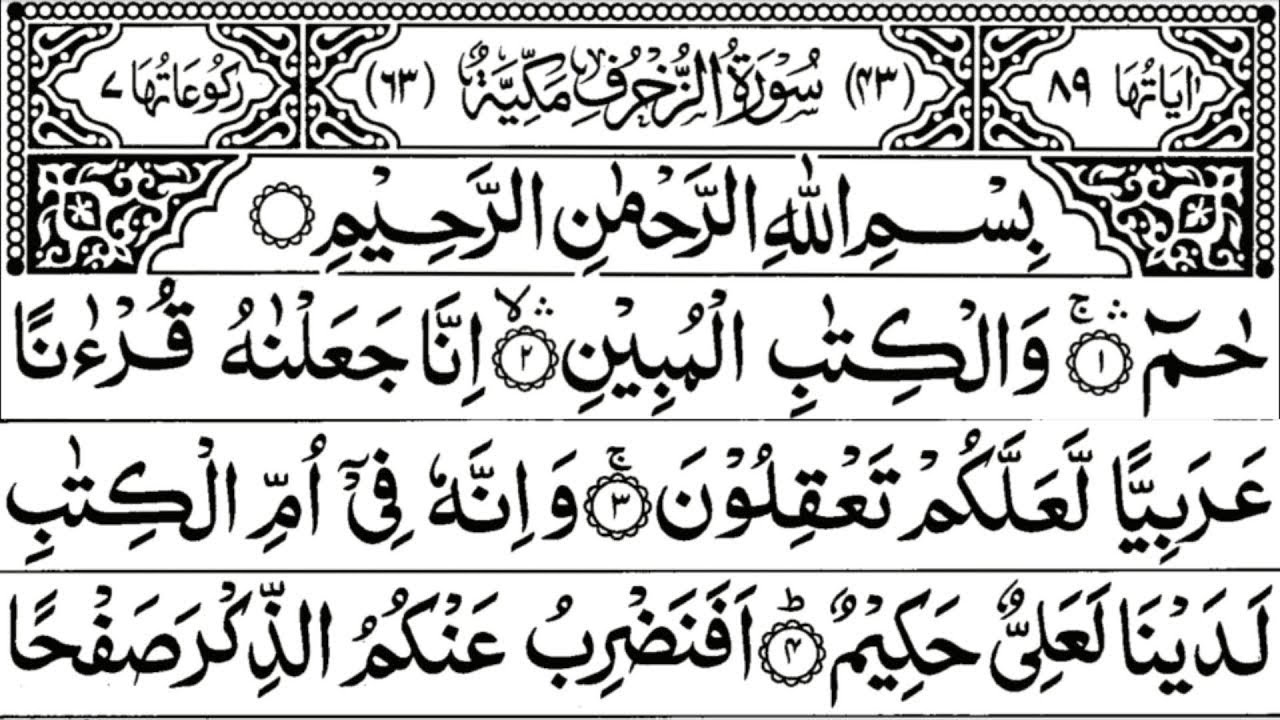 اٰيَاتُهَا ٨٩ (٤٣) سُوْرَةُ الزُّخْرُفِ مَكِّيَّةٌ (٦٣) رُكُوْعَاتُهَا ٧
بِسْمِ اللّٰهِ الرَّحْمٰنِ الرَّحِيْمِ
حٰمٓ ۛۚ ۝١ وَالْكِتٰبِ الْمُبِيْنِ ۛۙ ۝٢ اِنَّا جَعَلْنٰهُ قُرْءٰنًا
عَرَبِيًّا لَّعَلَّكُمْ تَعْقِلُوْنَ ۚ ۝٣ وَاِنَّهٗ فِيْٓ اُمِّ الْكِتٰبِ
لَدَيْنَا لَعَلِيٌّ حَكِيْمٌ ؕ ۝۴ اَفَنَضْرِبُ عَنْكُمُ الذِّكْرَ صَفْحًا